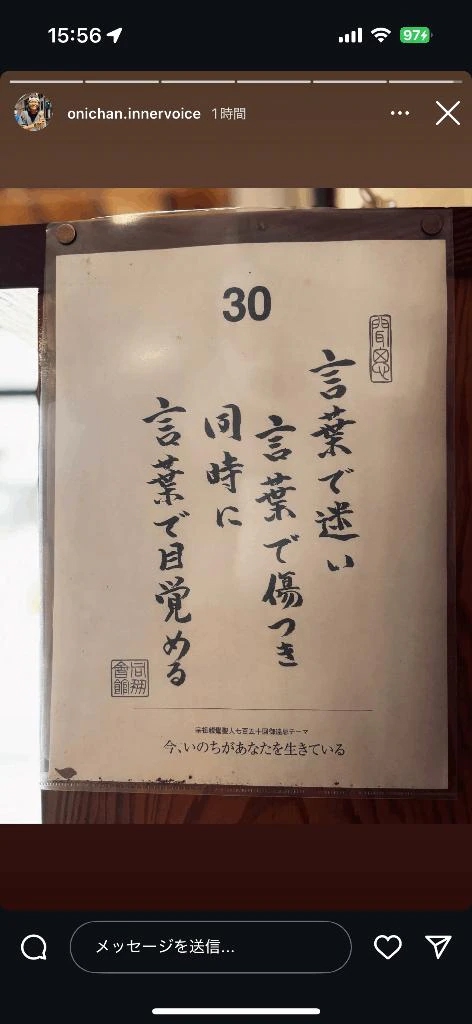 15:56
97
onichan.innervoice 1時間
30
言葉で迷い
言葉で傷つき
同時に
言葉で目覚める
同朋
會館
宗祖親鸞聖人七百五十回御遠忌テーマ
今、いのちがあなたを生きている
メッセージを送信...